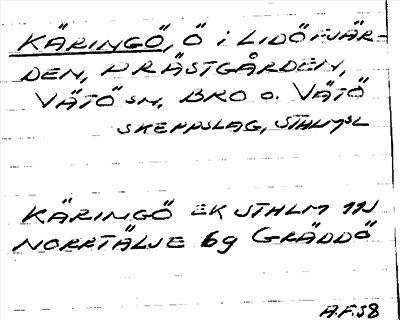 KÄRINGÖ, Ö i LIDÖFJÄR-
DEN, PRÄSTGÅRDEN,
VÄTÖ SN, BRO O. VÄTÖ
SKEPPSLAG, STHLMSL
KÄRINGÖ EK STHLM 11J
NORRTÄLJE 6g GRÄDDÖ
A.F.58